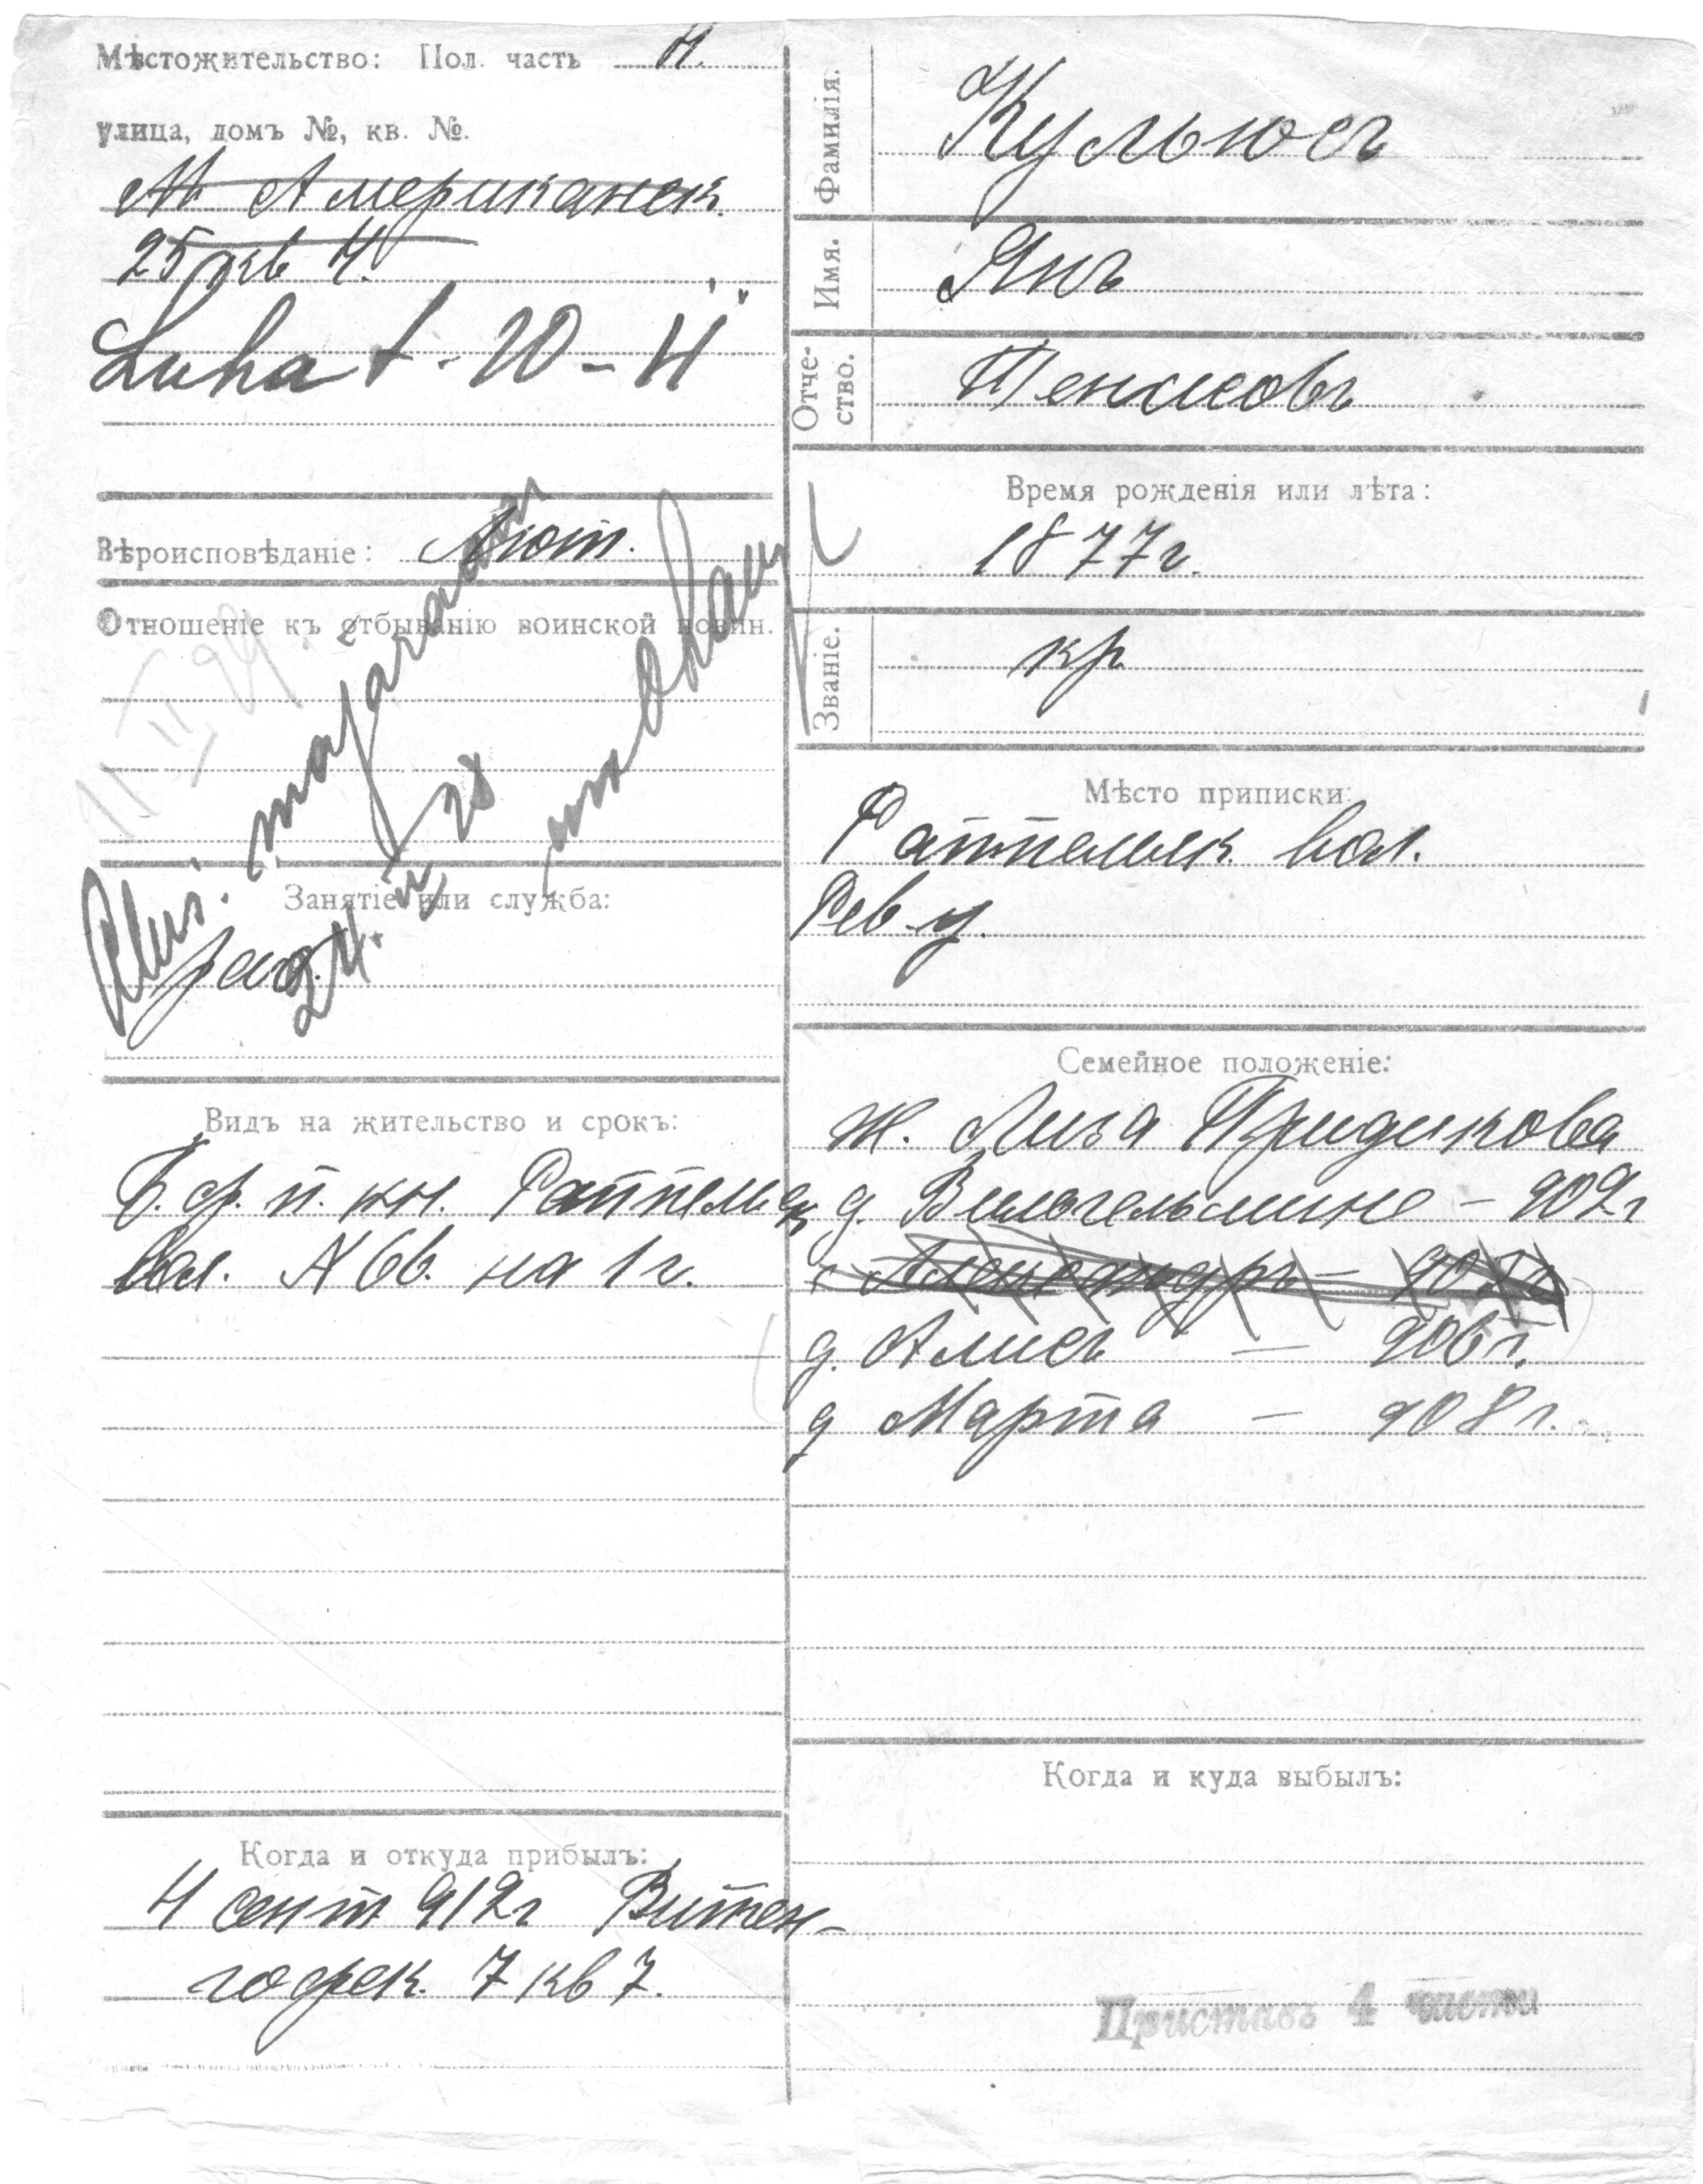 Мѣстожительство: Пол. часть 4.
улица, домъ №, кв. №.
М Американск.
25 кв 4.
Luha t. 20 - 4
Вѣроисповѣданіе: Лют.
Отношеніе къ отбыванію воинской повин.
11 II 29.
Alus. majaraamat
24. IV 28
Занятіе или служба:
раб.
Видъ на жительство и срокъ:
Б. ср. п. кн. Раппельск
вол. № 66. на 1 г.
Когда и откуда прибылъ:
4 сент 912г Виттен-
гофск. 7 кв 7.
Фамилія.
Кульюсъ
Имя.
Янъ
Отче-
ство.
Тенисовъ
Время рожденія или лѣта:
1877г.
Званіе.
кр
Мѣсто приписки:
Раппельск вол.
Рев у.
Семейное положеніе:
ж. Лиза Придикова
д. Вильгельмине - 902г
с Александръ -
д. Алисъ - 906г.
д Марта - 908г.
Когда и куда выбылъ:
Приставъ 4 части